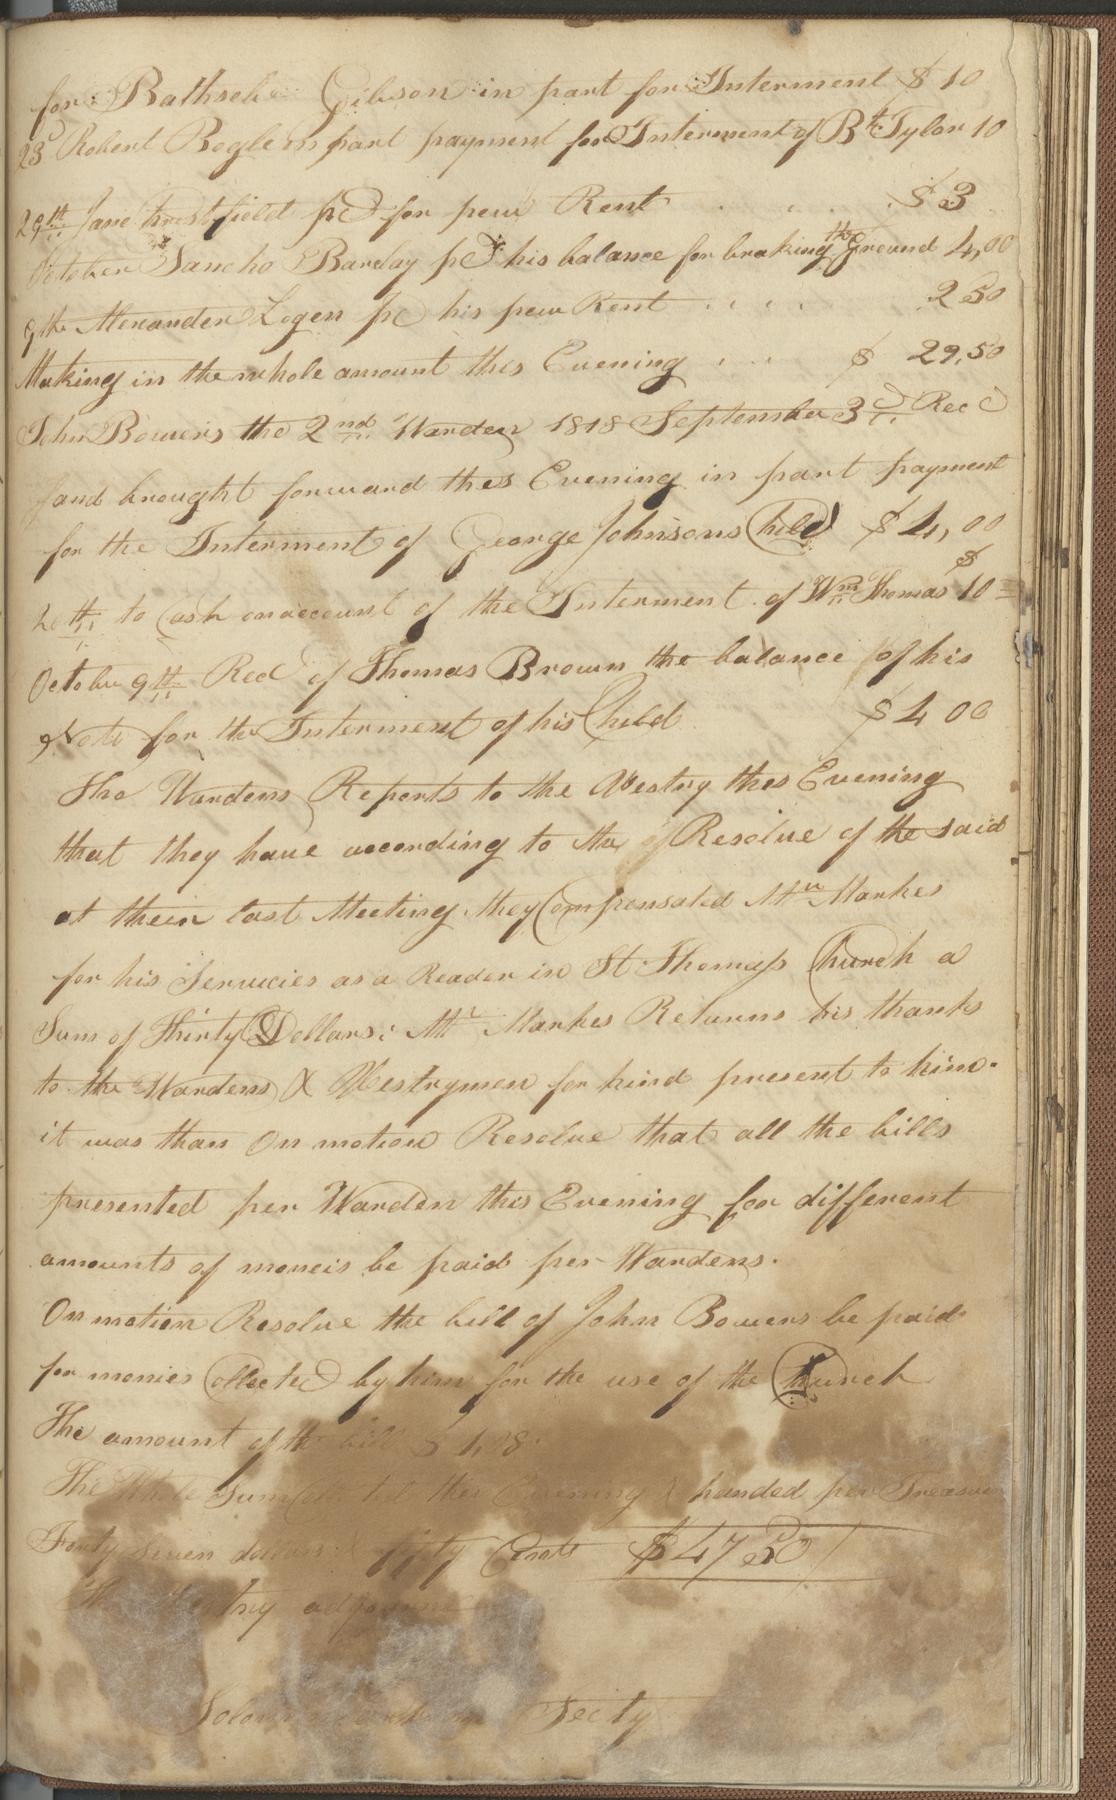 for Bathseh Gibson in part for Interment $ 10
23d Robert Bogle in part payment for Interment of Bt Tylor 10
29th Jane field pd for pew Rent . . . . $ 3
October Sancho Barclay pd his balance for braking the ground 4,00
9th Alexander Logen pd his pew Rent . . . . 2 50
Making in the whole amount this Evening . . . $ 29,50
John Bowers the 2nd Warden 1818 September 3d Recd
and brought forward thes Evening in part payment
for the Interment of George Johnsons Child $ 4,00
20th to Cash on account of the Interment of Wm Thomas $10
October 9th Recd of Thomas Brown the balance of his
Note for the Interment of his Child $ 4 00
The Wardens Reports to the Vestry thes Evening
that they have according to the Resolve of the said
at their last Meeting they Compensated Mr Markes
for his Servicies as a Reader in St Thomass Church a
Sum of Thirty Dollars; Mr Markes Returns his thanks
to the Wardens & Vestrymen for kind present to him.
it was than On motion Resolve that all the bills
presented per Warden this Evening for different
amounts of moneis be paid per Wardens.
On motion Resolve the bill of John Bowers be paid
for monies Collected by him for the use of the Church
The amount of the bill $ 1,08.
The Whole Sum Collected this Evening & handed per Treasurer
Forty Seven dollars & fifty Cents $ 47 50
The Vestry adjourned
Secty